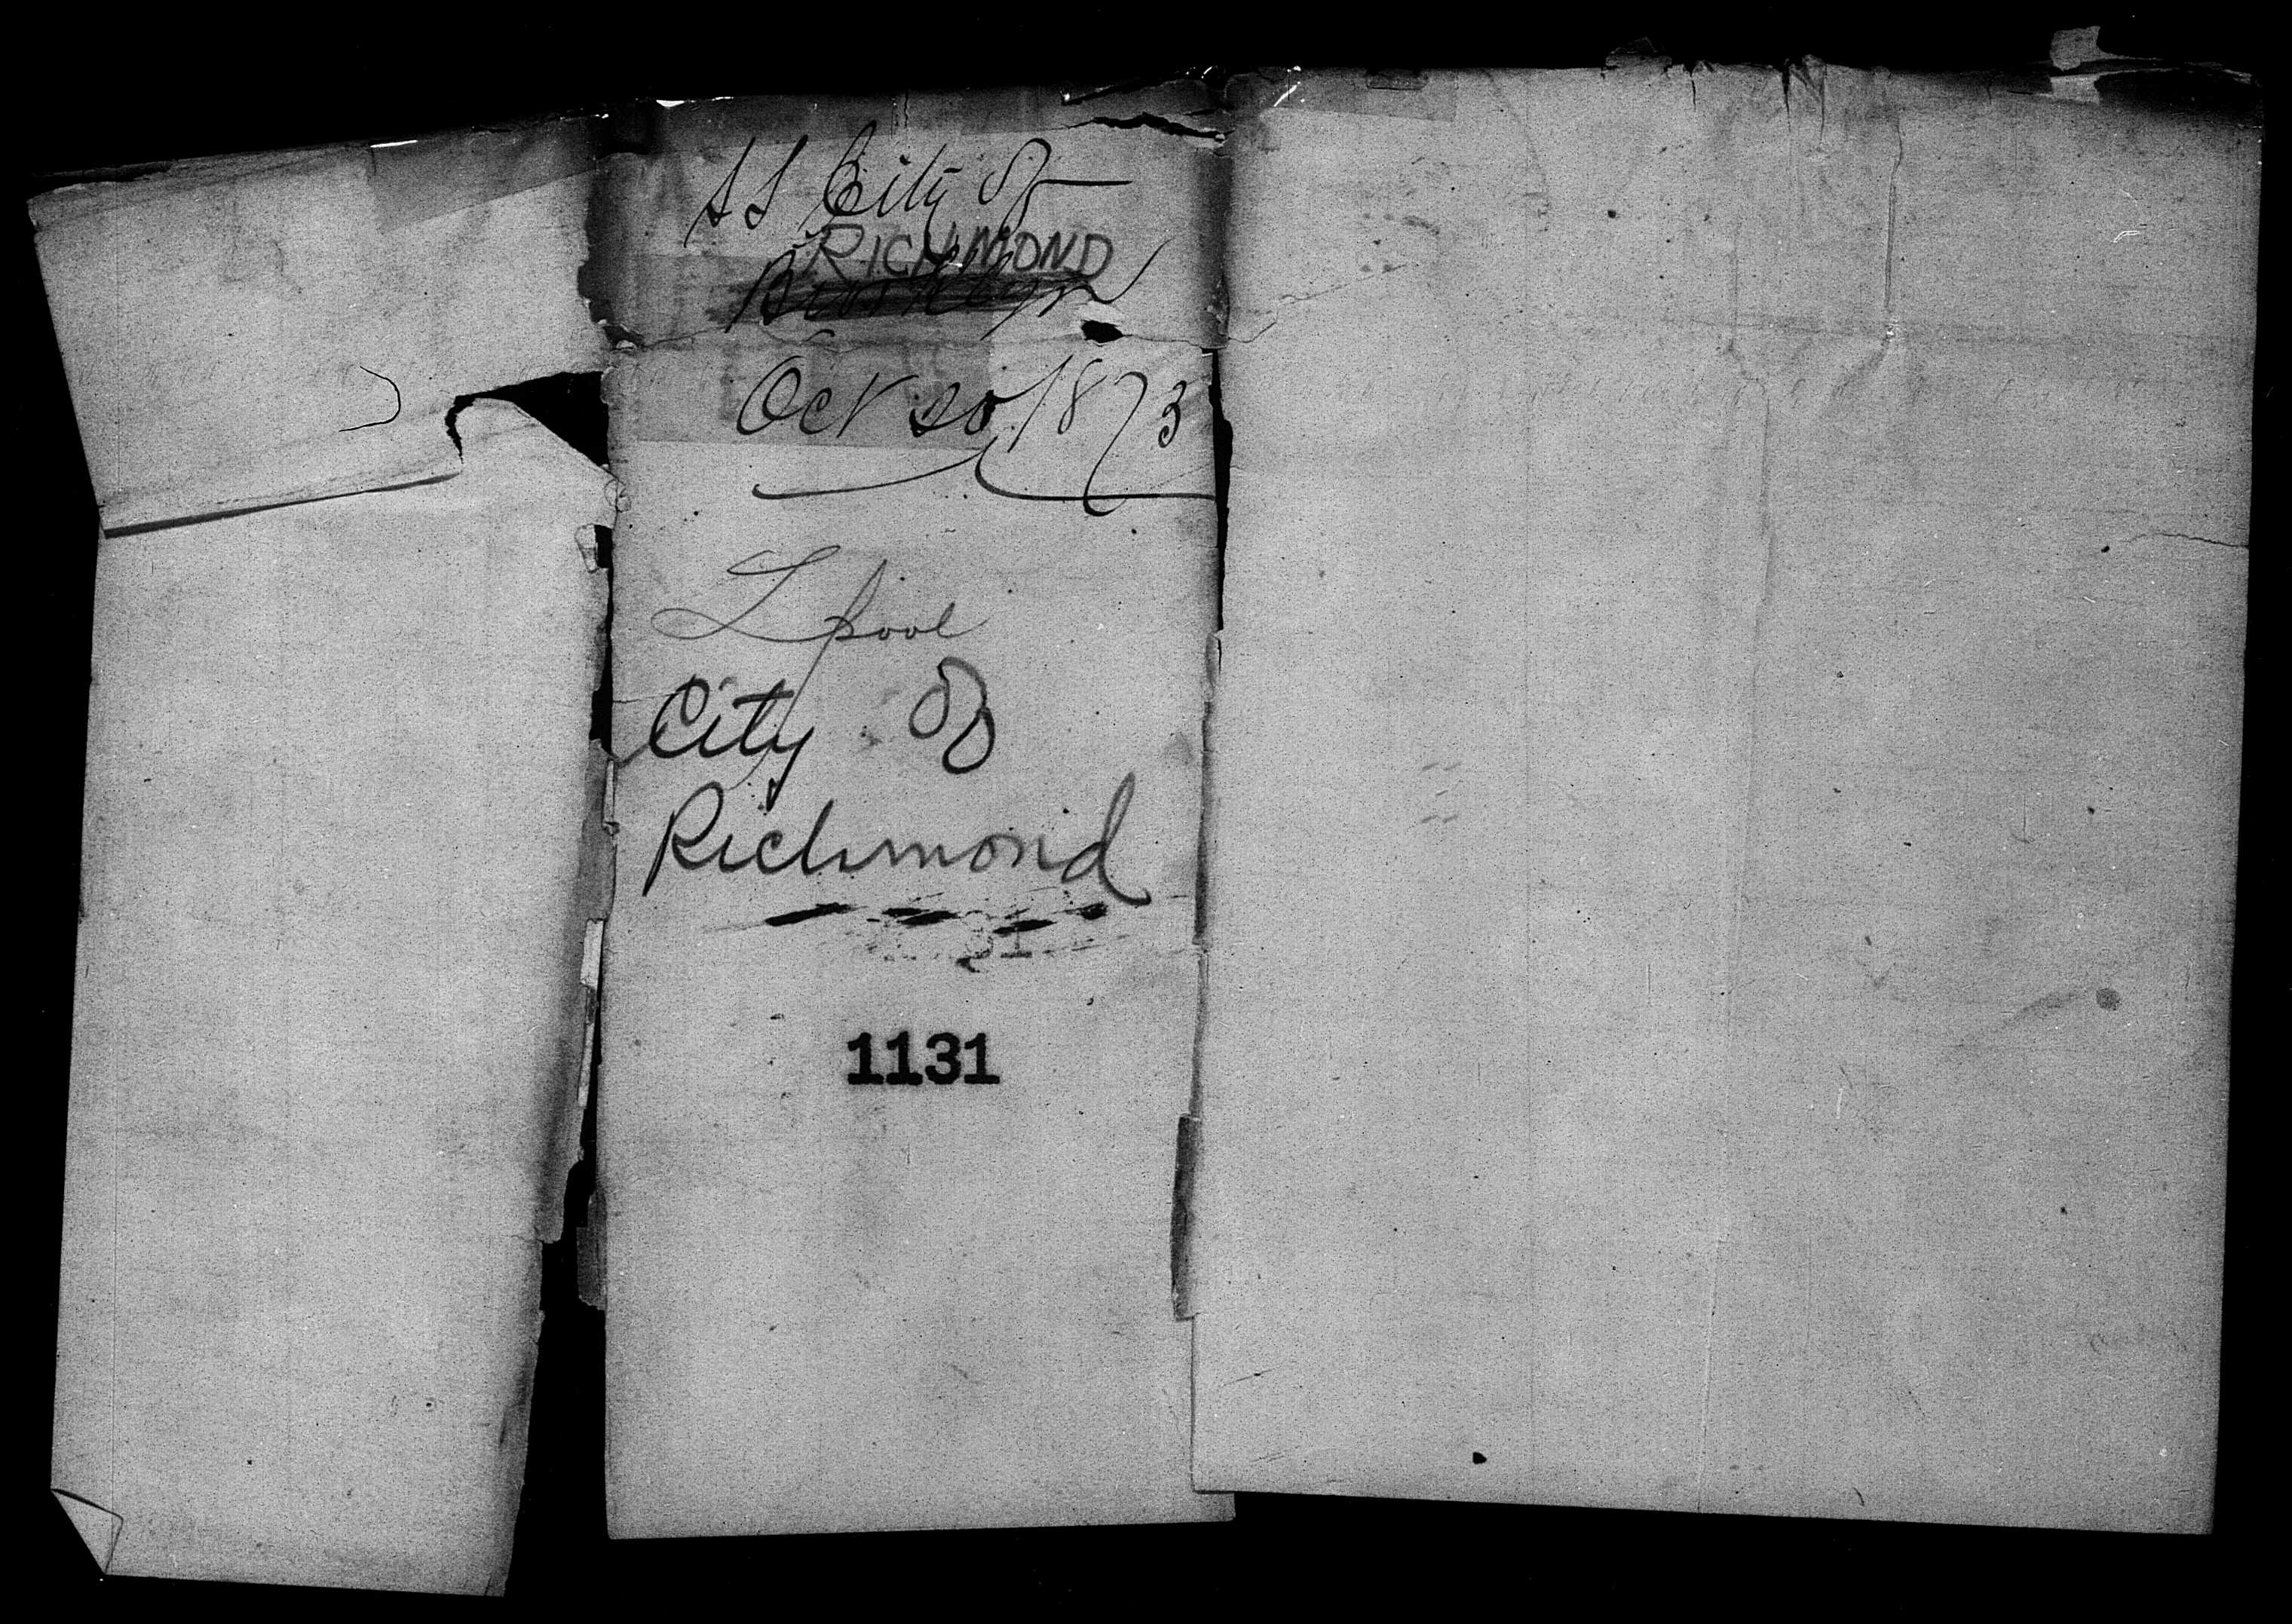 SS City of
RICHMOND
Brooklyn
Oct 20, 1873
Lpool
City of
Richmond
1131